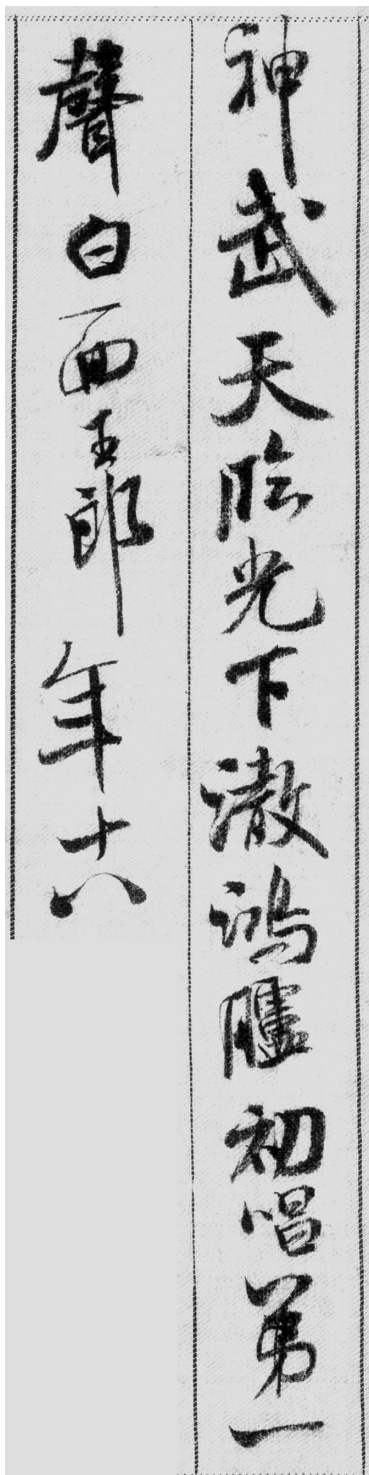 神武天臨光下澈鴻臚初唱第一
聲白面王郎年十八